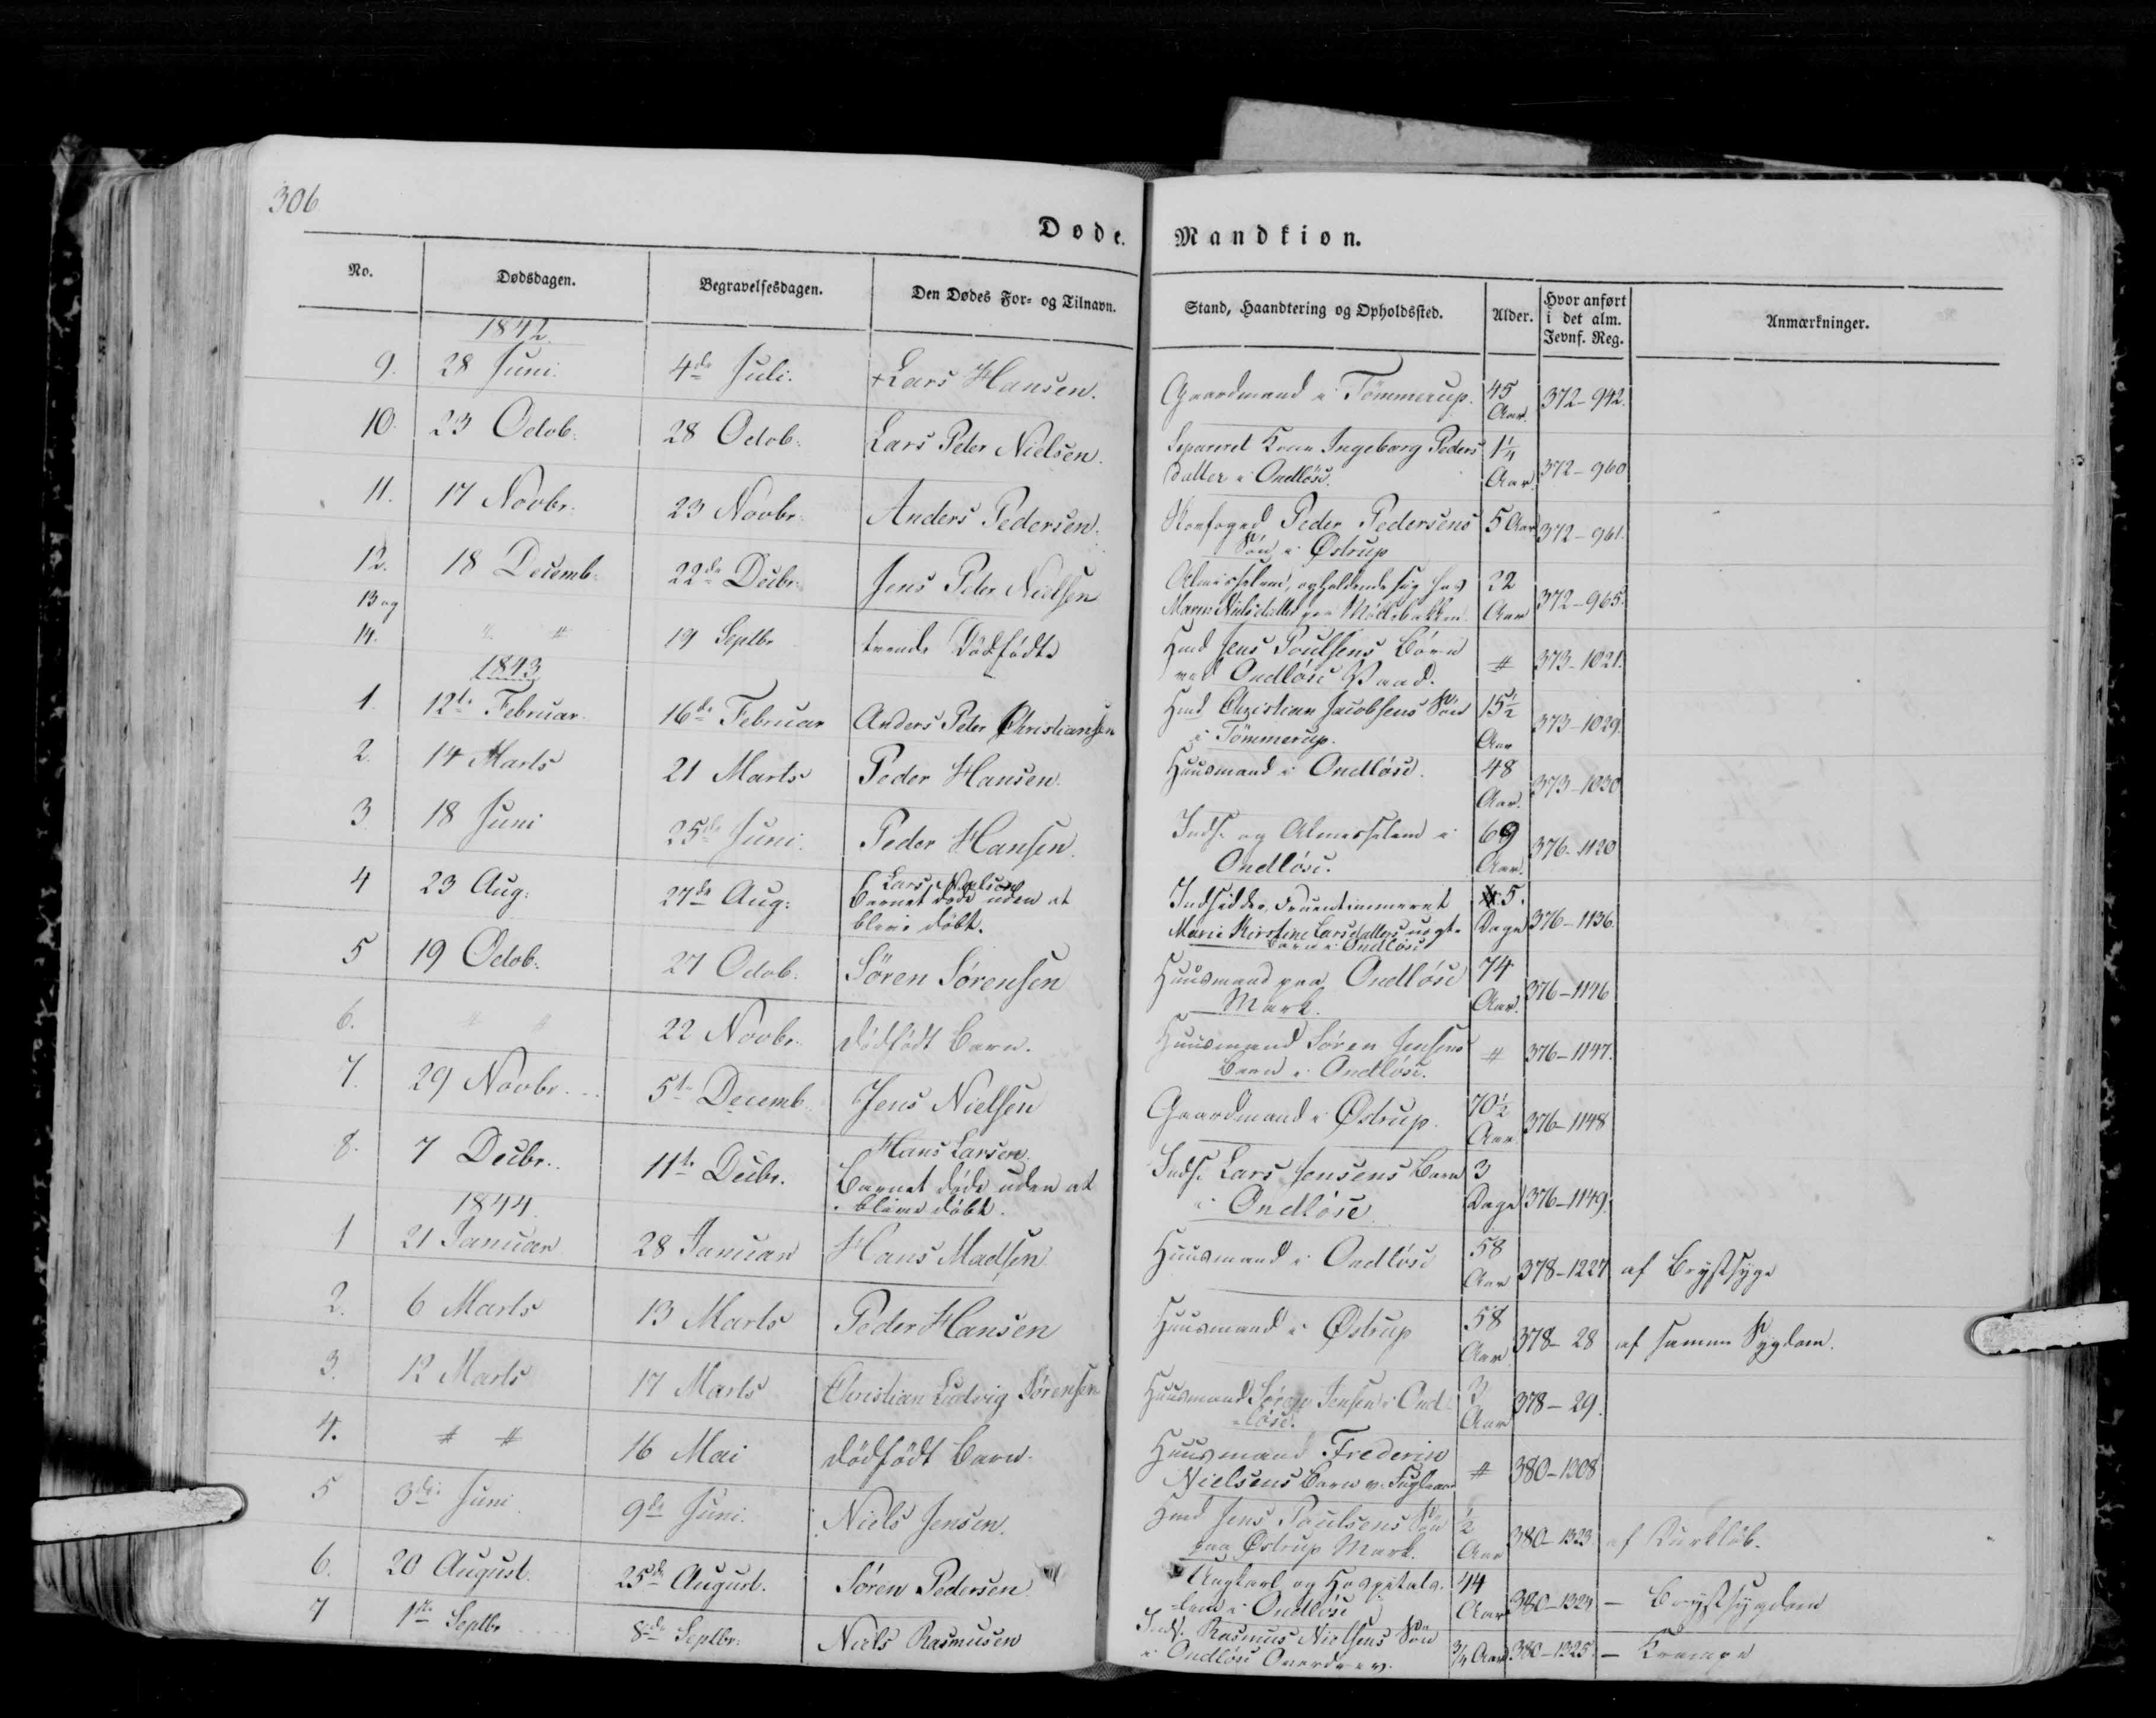 306
Døde. Mandkiøn.
No. Dødsdagen. Begravelsesdagen. Den Dødes For- og Tilnavn. Stand, Haandtering og Opholdssted. Alder. Hvor anført i det alm. Jevnf. Reg. Anmærkninger.
1842
9. 28 Juni. 4de Juli. +Lars Hansen. Gaardmand i Tömmerup. 45 Aar. 372-942.
10. 23 Octob. 28 Octob. Lars Peter Nielsen. Separeret Kone Ingeborg Peders
datter i Ondlöse. 1 1/4 Aar. 372-960
11. 17 Novbr. 23 Novbr. Anders Pedersen. Skovfoged Peder Pedersens 5 Aar 372-961.
Sön i Østrup
12. 18 Decemb. 22de Decbr. Jens Peter Nielsen Almisselem, opholdende sig hos 22
Maren Nielsdatter paa Aar 372-965.
13 og
14. " " 19 Septbr tvende Dödfödte Hmd Jens Poulsens Börn
ved Ondlöse Vaad. " 373-1021.
1843
1 12te Februar 16de Februar Anders Peter Christiansen Hmd Christian Jacobsens Sön 15 1/2
i Tömmerup. Aar 373-1029.
2. 14 Marts 21 Marts Peder Hansen. Huusmand i Ondlöse. 48 Aar. 373-1030
3 18 Juni 25de Juni. Peder Hansen. Inds. og Almisselem i 69
Ondlöse. Aar. 376-1120
4 23 Aug: 27de Aug: Lars Nielsen
Barnet döde uden at
blive döbt. Indsidder, Fruentimmeret 5.
Marie Kirstine Larsdatters uægte Dage 376-1136.
Barn i Ondlöse
5 19 Octob. 27 Octob. Sören Sörensen Huusmand paa Ondlöse 74
Mark. Aar. 376-1146
6. " " 22 Novbr. dödfödt Barn. Huusmand Sören Jensens " 376-1147.
Barn i Ondlöse.
7. 29 Novbr. 5te Decemb. Jens Nielsen Gaardmand i Østrup. 70 1/2 Aar. 376-1148
8. 7 Decbr. 11te Decbr. Hans Larsen.
Barnet döde uden at
blive döbt. Inds. Lars Jensens Barn 3
i Ondlöse Dage 376-1149.
1844.
1 21 Januar 28 Januar Hans Madsen Huusmand i Ondlöse 58 Aar 378-1227 af Brystsyge
2. 6 Marts 13 Marts Peder Hansen Huusmand i Østrup 58 Aar 378-28 af samme Sygdom.
3. 12 Marts 17 Marts Christian Ludvig Sörensen Huusmand Sören Jensen i Ond- 3
löse. Aar 378-29.
4. " " 16 Mai dödfödt Barn. Huusmand Frederik
Nielsens Barn v. " 380-1308
5 3die Juni. 9de Juni. Niels Jensen. Hmd Jens Poulsens Sön 1/2
paa Østrup Mark. Aar 380-1323 af
6. 20 August. 25de August. Sören Pedersen Ungkarl og Hospitals- 44
lem i Ondlöse Aar 380-1324 — Brystsygdom
7 1ste Septbr 8de Septbr. Niels Rasmusen Inds. Rasmus Nielsens Sön
i Ondlöse Overdrev. 3/4 Aar 380-1325. — Krampe